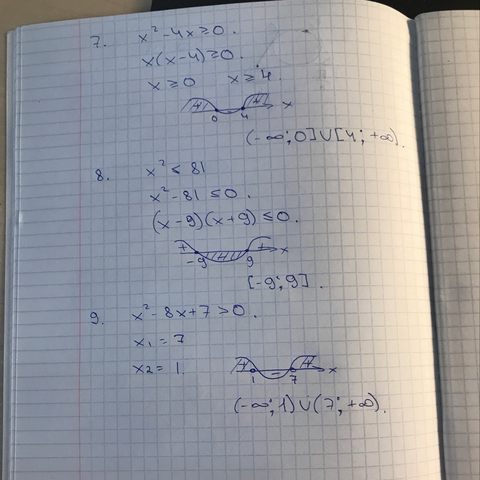 7. x² - 4x ≥ 0.
x(x-4) ≥ 0.
x ≥ 0 x ≥ 4.
+ + x
0 4
(-∞; 0] ∪ [4; +∞).
8. x² ≤ 81
x² - 81 ≤ 0.
(x-9)(x+9) ≤ 0.
+ - + x
-9 9
[-9; 9].
9. x² - 8x + 7 > 0.
x1 = 7
x2 = 1.
+ - + x
1 7
(-∞; 1) ∪ (7; +∞).